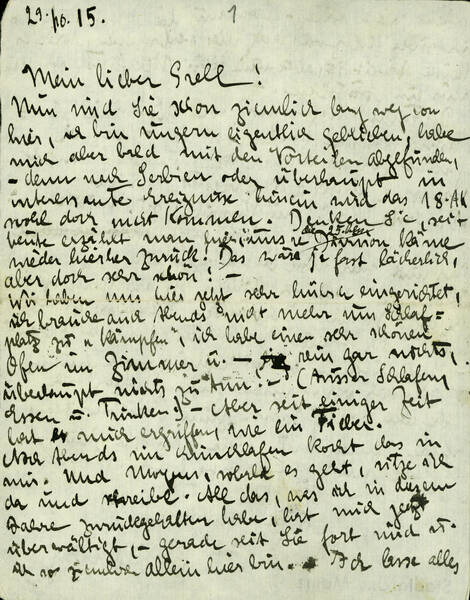 29. 10. 15.
1
Mein lieber Grell!
Nun sind Sie schon ziemlich lang weg von
hier, ich bin ungern eigentlich geblieben, habe
mich aber bald mit den Vorteilen abgefunden,
– denn nach Serbien oder überhaupt in
interessante Ereignisse hinein wird das 18. AK
wohl doch nicht kommen. Denken Sie, seit
heute erzählt man die 25.
Division käme
wieder hierher zurück! Das wäre ja fast lächerlich,
aber doch sehr schön! –
Wir haben uns hier jetzt sehr hübsch eingerichtet,
ich brauche auch Abends nicht mehr um Schlaf=
platz zu "kämpfen", ich habe einen sehr schönen
Ofen im Zimmer u. – rein gar nichts,
überhaupt nichts zu tun! – (Ausser Schlafen,
Essen u. Trinken!) – Aber seit einiger Zeit
hat es mich ergriffen, wie ein Fieber.
Noch Abends im Einschlafen kocht das in
mir. Und Morgens, sobald es geht, sitze ich
da und schreibe. All das, was ich in diesem
Jahre zurückgehalten habe, hat mich jetzt
überwältigt, – gerade seit Sie fort sind u.
ich so ziemlich allein hier bin. – Ich lasse alles